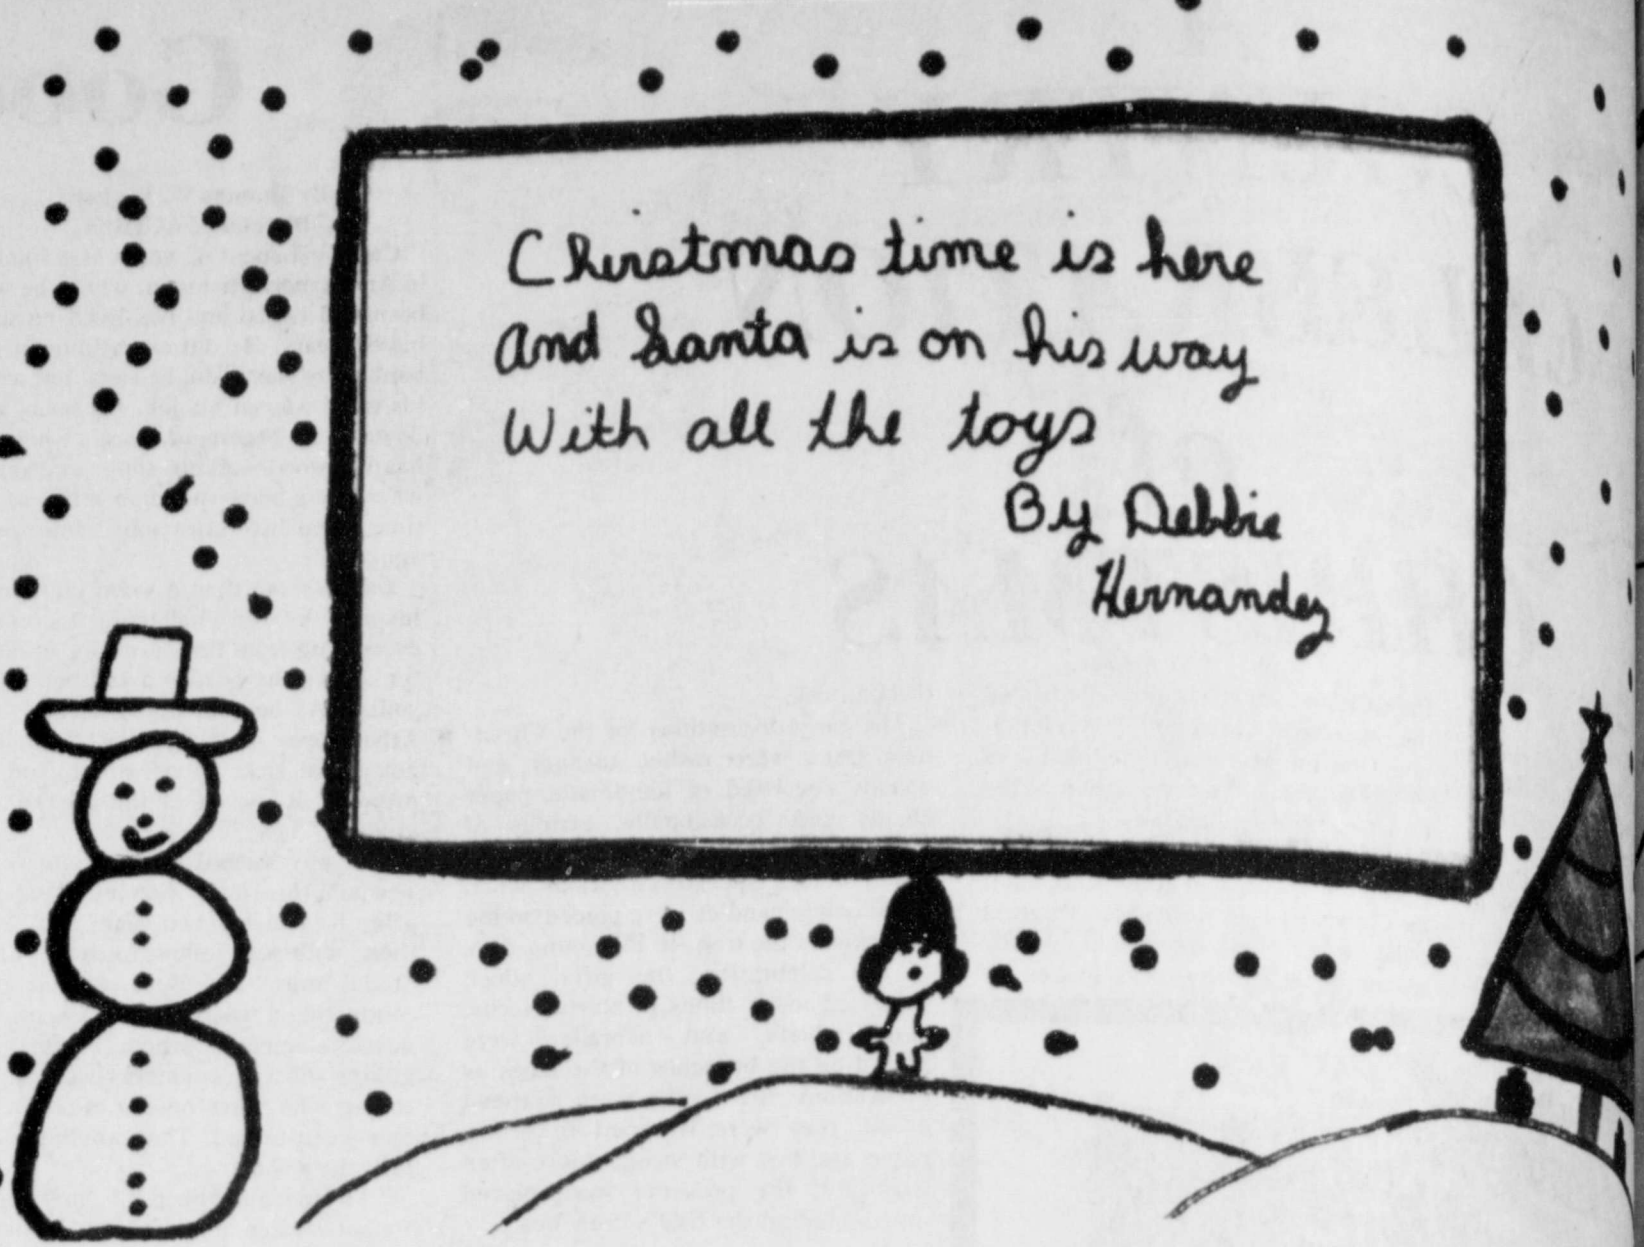 Christmas time is here
And Santa is on his way
With all the toys
By Debbie
Hernandez